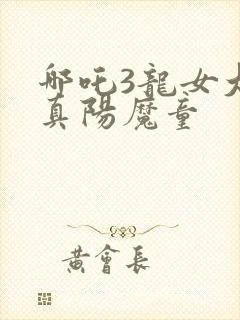 哪吒3龍女大
真陽魔童
黃會長